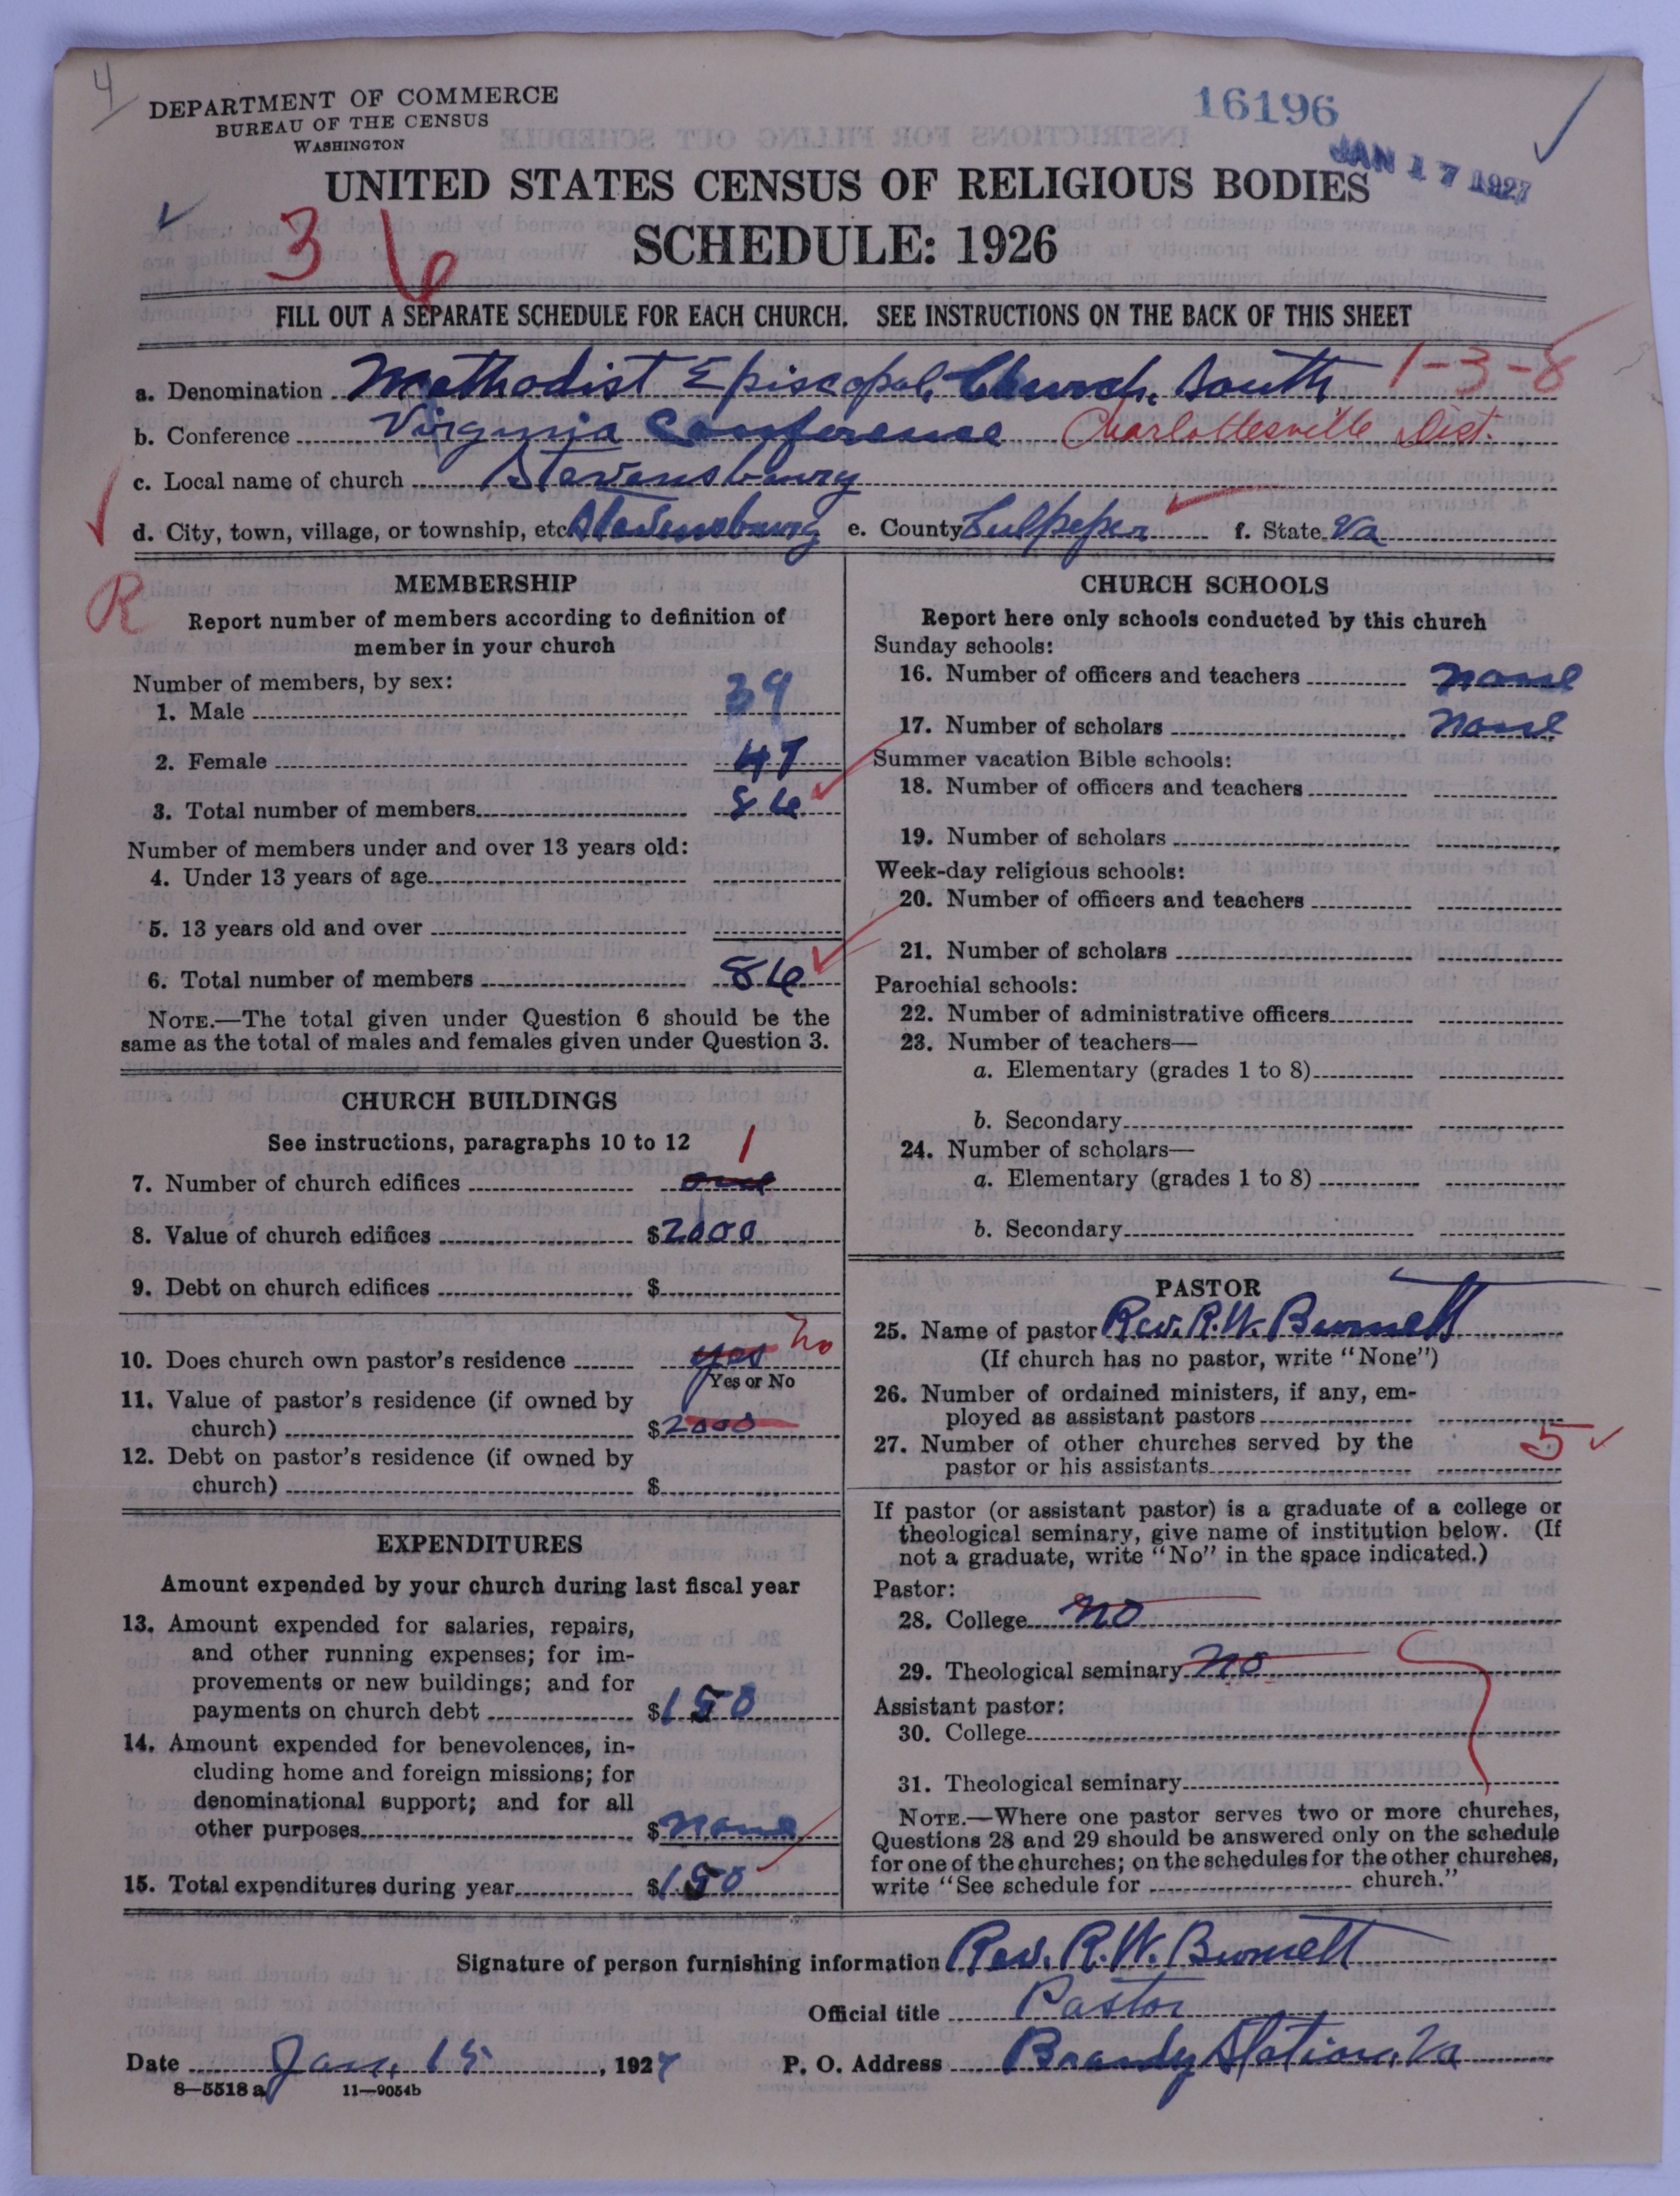 4
DEPARTMENT OF COMMERCE
BUREAU OF THE CENSUS
WASHINGTON
16196
JAN 17 1927
UNITED STATES CENSUS OF RELIGIOUS BODIES
SCHEDULE: 1926
3 6
FILL OUT A SEPARATE SCHEDULE FOR EACH CHURCH. SEE INSTRUCTIONS ON THE BACK OF THIS SHEET
a. Denomination Methodist Episcopal Church, South 1-3-8
b. Conference Virginia Conference Charlottesville Dist.
c. Local name of church Stevensburg
d. City, town, village, or township, etc. Stevensburg e. County Culpeper f. State Va
R
MEMBERSHIP
Report number of members according to definition of
member in your church
Number of members, by sex:
1. Male 39
2. Female 47
3. Total number of members 86
Number of members under and over 13 years old:
4. Under 13 years of age
5. 13 years old and over
6. Total number of members 86
NOTE.—The total given under Question 6 should be the
same as the total of males and females given under Question 3.
CHURCH BUILDINGS
See instructions, paragraphs 10 to 12
1
7. Number of church edifices one
8. Value of church edifices $2000
9. Debt on church edifices $
10. Does church own pastor's residence yes no
Yes or No
11. Value of pastor's residence (if owned by
church) $2000
12. Debt on pastor's residence (if owned by
church) $
EXPENDITURES
Amount expended by your church during last fiscal year
13. Amount expended for salaries, repairs,
and other running expenses; for im-
provements or new buildings; and for
payments on church debt $150
14. Amount expended for benevolences, in-
cluding home and foreign missions; for
denominational support; and for all
other purposes $none
15. Total expenditures during year $150
CHURCH SCHOOLS
Report here only schools conducted by this church
Sunday schools:
16. Number of officers and teachers none
17. Number of scholars none
Summer vacation Bible schools:
18. Number of officers and teachers
19. Number of scholars
Week-day religious schools:
20. Number of officers and teachers
21. Number of scholars
Parochial schools:
22. Number of administrative officers
23. Number of teachers—
a. Elementary (grades 1 to 8)
b. Secondary
24. Number of scholars—
a. Elementary (grades 1 to 8)
b. Secondary
PASTOR
25. Name of pastor Rev. R. W. Burnett
(If church has no pastor, write "None")
26. Number of ordained ministers, if any, em-
ployed as assistant pastors
27. Number of other churches served by the
pastor or his assistants 5
If pastor (or assistant pastor) is a graduate of a college or
theological seminary, give name of institution below. (If
not a graduate, write "No" in the space indicated.)
Pastor:
28. College no
29. Theological seminary no
Assistant pastor:
30. College
31. Theological seminary
NOTE.—Where one pastor serves two or more churches,
Questions 28 and 29 should be answered only on the schedule
for one of the churches; on the schedules for the other churches,
write "See schedule for church."
Signature of person furnishing information Rev. R. W. Burnett
Official title Pastor
Date Jan. 15, 1927 P. O. Address Brandy Station, Va
8—5518 a 11—9054b